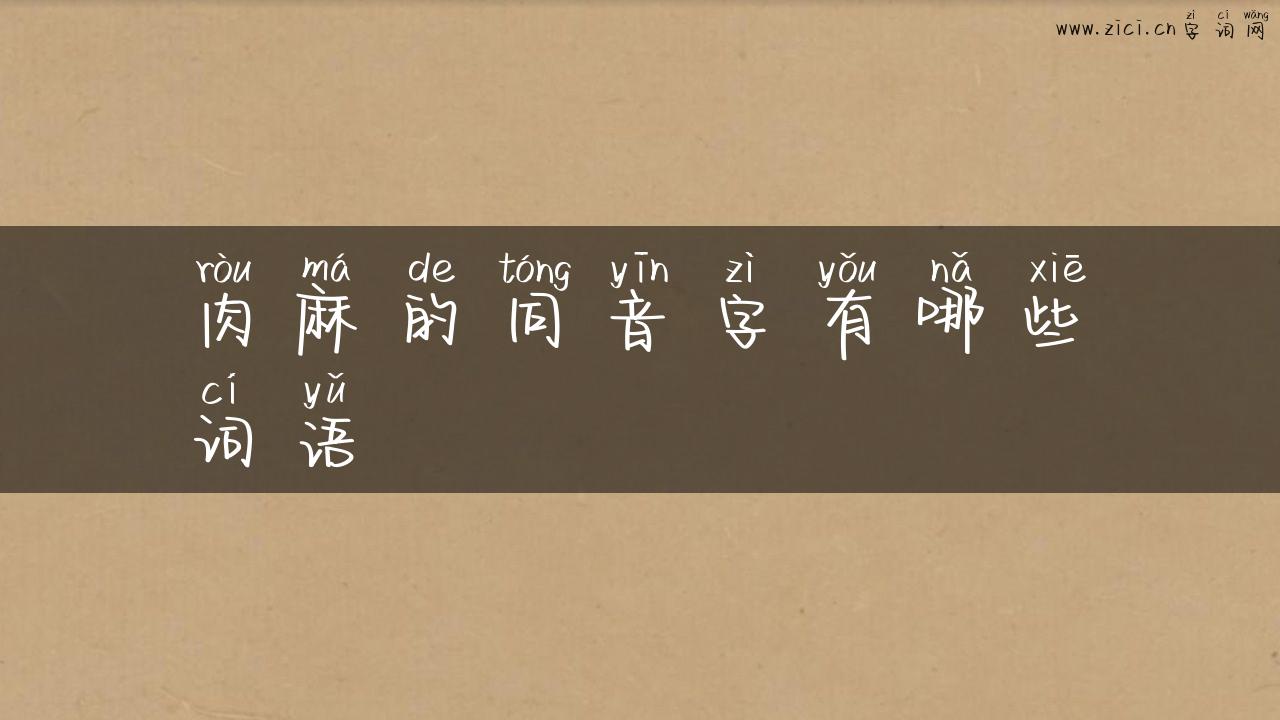 zì cí wǎng
www.zici.cn 字词网
ròu má de tóng yīn zì yǒu nǎ xiē
肉麻的同音字有哪些
cí yǔ
词语